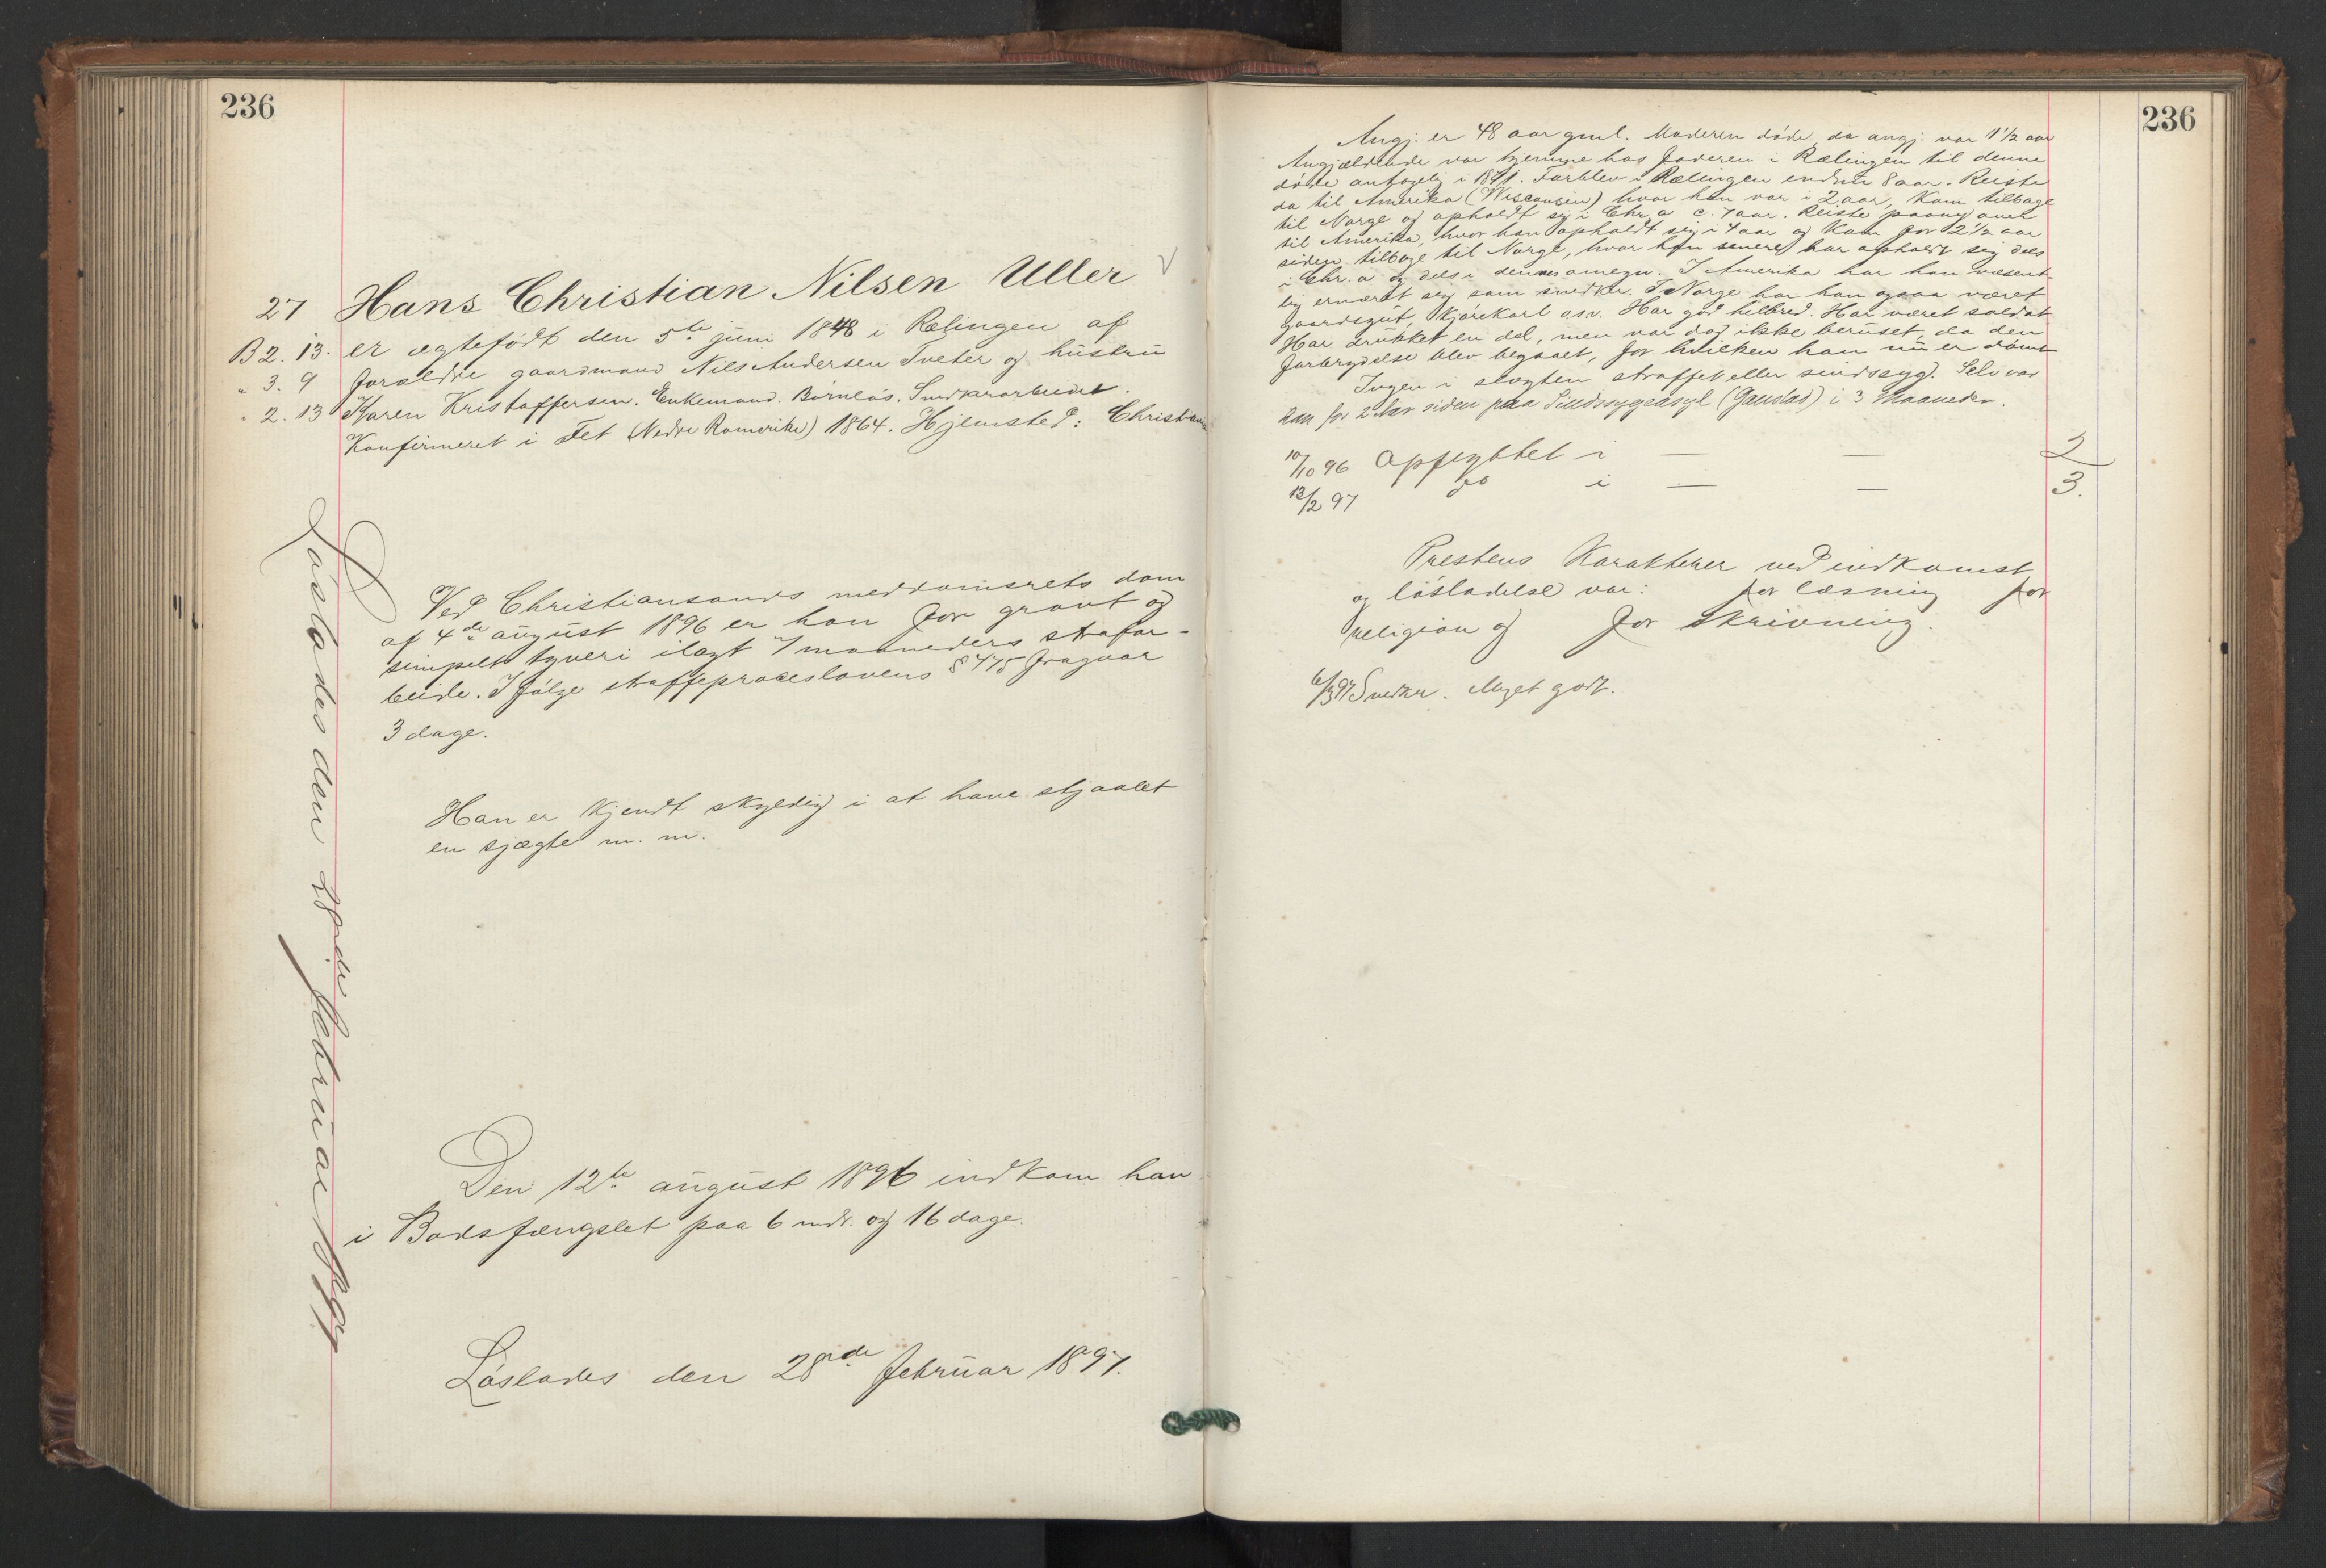 236
27 Hans Christian Nilsen Uller
B 2. 13. er ægtefødt den 5te juni 1848 i Rælingen af
" 3. 9 forældre gaardmand Nils Andersen Tveter og hustru
" 2. 13 Karen Kristoffersen. Enkemand. Børnløs. Snedkerarbeider.
Konfirmeret i Fet (Nedre Romerike) 1864. Hjemsted: Christiania
Løslades den 28nde februar 1897
Ved Christianssands meddomsrets dom
af 4de august 1896 er han for grovt og
simpelt tyveri ilagt 7 maaneders strafar-
beide. I følge straffeproceslovens § 475 fragaar
3 dage.
Han er kjendt skyldig i at have stjaalet
en sjægte m. m.
Den 12te august 1896 indkom han
i Bodsfængslet paa 6 mdr. og 16 dage.
Løslades den 28nde februar 1897.
236
Angj. er 48 aar gml. Moderen døde, da angj. var 1 1/2 aar
Angjældende var hjemme hos faderen i Rælingen til denne
døde antagelig i 1871. Forblev i Rælingen endnu 8 aar. Reiste
da til Amerika (Wisconsin) hvor han var i 2 aar, kom tilbage
til Norge og opholdt sig i Chr.a c. 7 aar. Reiste paany over
til Amerika, hvor han opholdt sig i 4 aar og kom for 2 1/2 aar
siden tilbage til Norge, hvor han senere har opholdt sig dels
i Chr.a og dels i dennes omegn. I Amerika har han væsent-
lig ernæret sig som snedker. I Norge har han ogsaa været
gaardsgut, kjørekarl o.s.v. Har god helbred. Har været soldat
Har drukket en del, men var dog ikke beruset, da den
forbrydelse blev begaaet, for hvilken han nu er dømt
Ingen i slægten straffet eller sindssyg. Selv var
han for 2 Aar siden paa Sindssygeasyl (Gaustad) i 3 Maaneder.
10/10 96 Opflyttet i — — 2
13/2 97 do i — — 3.
Prestens Karakterer ved indkomst
og løsladelse var: for læsning for
religion og for skrivning.
6/3 97 Snedker. Meget godt.